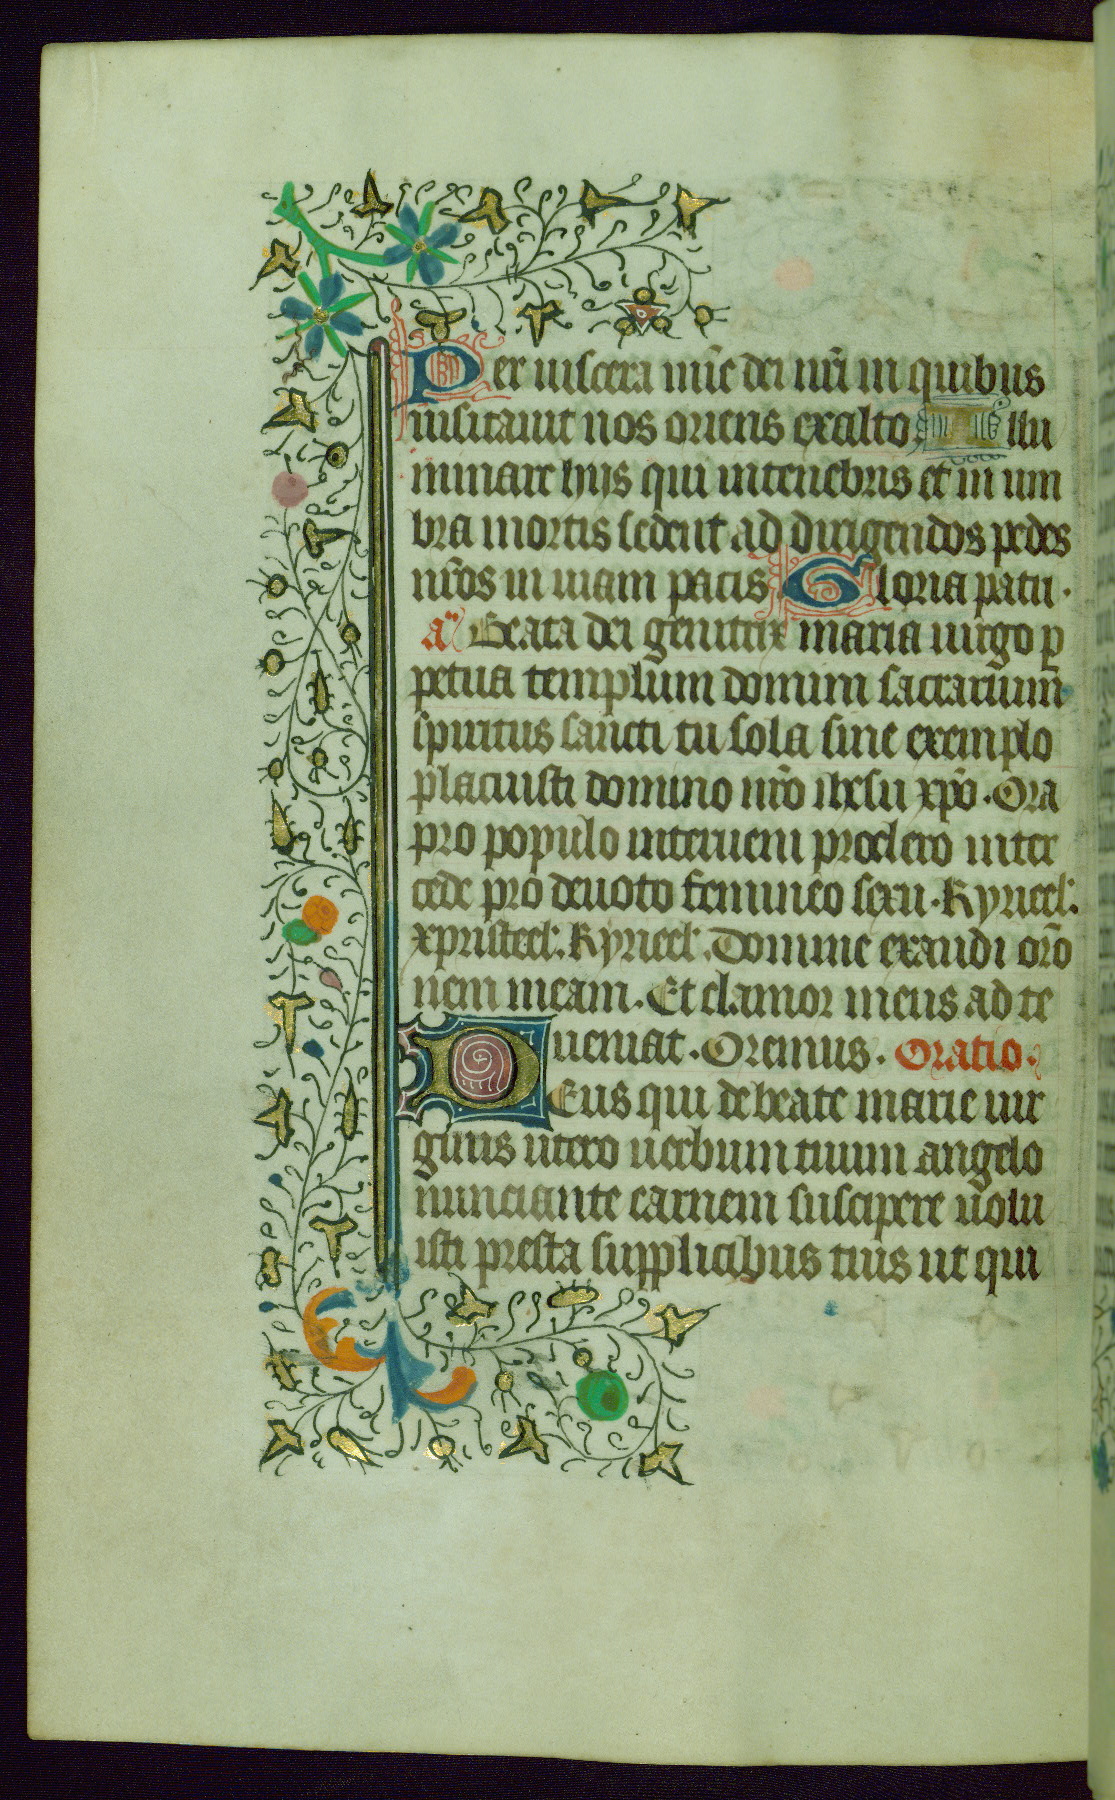 Per uiscera mīe dei nr̄i in quibus
uisitauit nos oriens exalto Illu
minare hijs qui intenebris et in um
bra mortis sedent ad dirigendos pedes
nr̄os in uiam pacis Gloria patri.
a Beata dei genitrix maria uirgo ꝑ
petua templum domini sacrarium
spiritus sancti tu sola sine exemplo
placuisti domino nr̄o ihesu xpō. Ora
pro populo interueni proclero inter
cede pro deuoto femineo sexu. Kyrieel.
xpristeel. Kyrieel. Domine exaudi orō
nem meam. Et clamor meus ad te
ueniat. Oremus. Oratio.
DEus qui debeate marie uir
ginis utero uerbum tuum angelo
nunciante carnem suscipere uolu
isti presta supplicibus tuis ut qui